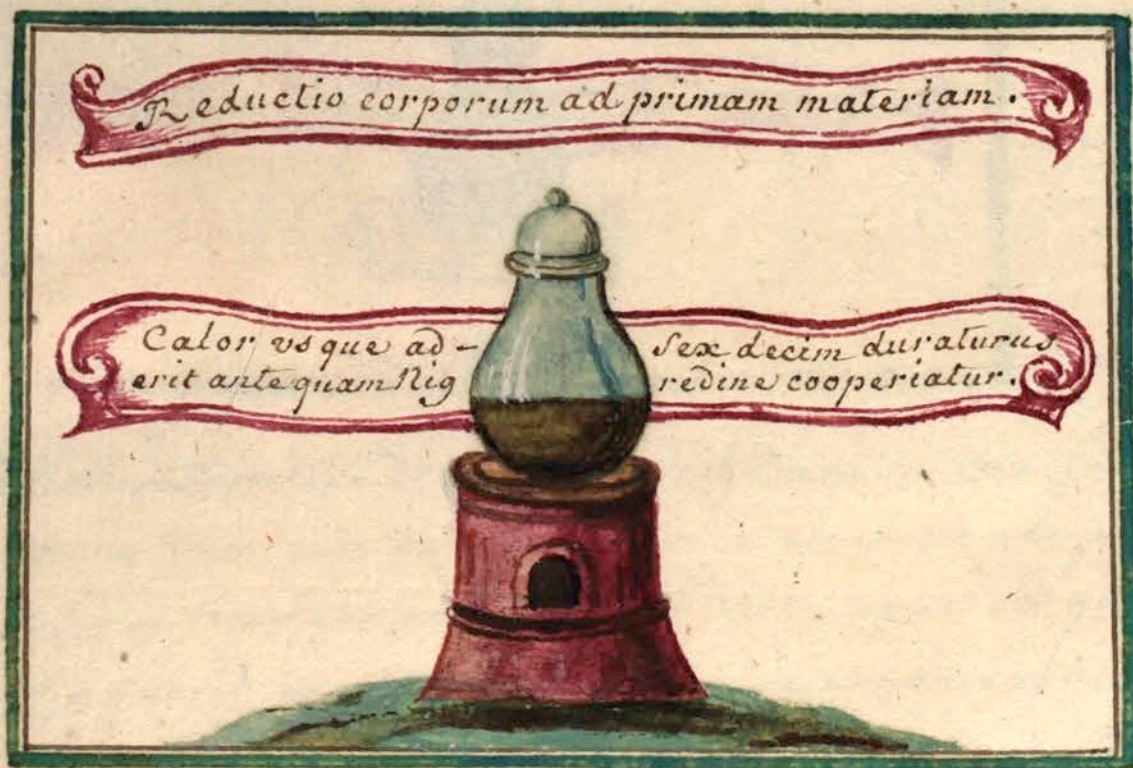 Reductio corporum ad primam materiam.
Calor usque ad- Sex decim duraturus
erit antequam Nig redine cooperiatur.